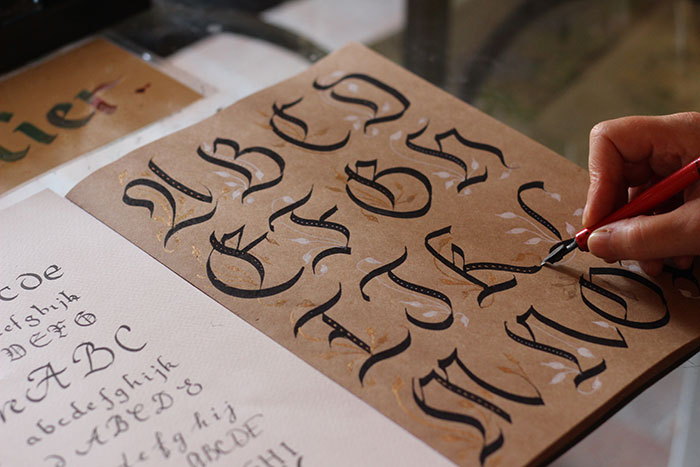 lier
A B C D
E F G H
I J K L
M N O
CDE
efghijk
DEFG
ABC
abcdefghijk
ABCDE
efghij
ABCDE